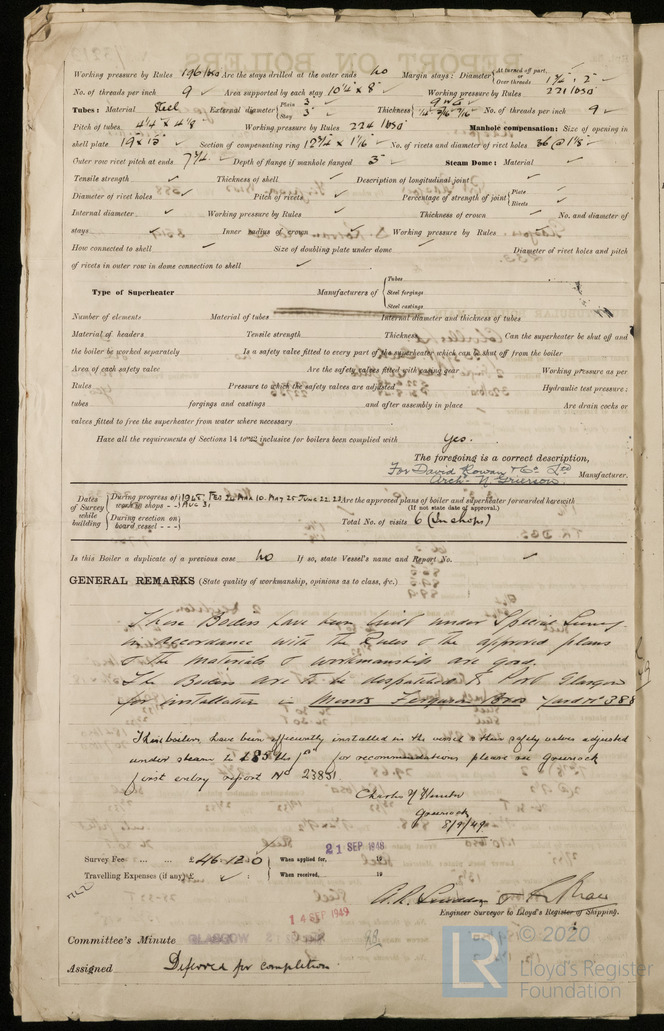 Working pressure by Rules 196 lbs Are the stays drilled at the outer ends No Margin stays: Diameter { At turned off part, or Over threads 1¾", 2" ✓
No. of threads per inch 9 ✓ Area supported by each stay 10¼ x 8" Working pressure by Rules 221 lbs
Tubes: Material Steel External diameter { Plain 3" Stay 3" ✓ Thickness { No. of threads per inch 9 ✓
Pitch of tubes 4¼ x 4⅛ Working pressure by Rules 224 lbs Manhole compensation: Size of opening in
shell plate Section of compensating ring No. of rivets and diameter of rivet holes 36 @ 1⅛ ✓
Outer row rivet pitch at ends 7¾" Depth of flange if manhole flanged 3" Steam Dome: Material ✓
Tensile strength ✓ Thickness of shell ✓ Description of longitudinal joint ✓
Diameter of rivet holes ✓ Pitch of rivets ✓ Percentage of strength of joint { Plate Rivets
Internal diameter ✓ Working pressure by Rules ✓ Thickness of crown ✓ No. and diameter of
stays ✓ Inner radius of crown ✓ Working pressure by Rules ✓
How connected to shell ✓ Size of doubling plate under dome ✓ Diameter of rivet holes and pitch
of rivets in outer row in dome connection to shell ✓
Type of Superheater Manufacturers of { Tubes Steel forgings Steel castings
Number of elements Material of tubes Internal diameter and thickness of tubes
Material of headers Tensile strength Thickness Can the superheater be shut off and
the boiler be worked separately Is a safety valve fitted to every part of the superheater which can be shut off from the boiler
Area of each safety valve Are the safety valves fitted with easing gear Working pressure as per
Rules Pressure to which the safety valves are adjusted Hydraulic test pressure:
tubes forgings and castings and after assembly in place Are drain cocks or
valves fitted to free the superheater from water where necessary
Have all the requirements of Sections 14 to 22 inclusive for boilers been complied with Yes.
The foregoing is a correct description,
For David Rowan & Co. Ltd Manufacturer.
Arch. N. Grierson
Dates of Survey while building { During progress of work in shops - - } 1948 Feb 24 Mar 10. May 25 June 22. 23 Aug 3. Are the approved plans of boiler and superheater forwarded herewith
(If not state date of approval.)
During erection on board vessel - - - Total No. of visits 6 (In shops)
Is this Boiler a duplicate of a previous case No If so, state Vessel's name and Report No. ✓
GENERAL REMARKS (State quality of workmanship, opinions as to class, &c.)
These Boilers have been built under Special Survey
in accordance with the Rules & the approved plans
& the materials & workmanship are good.
The Boilers are to be despatched to Port Glasgow
for installation in Messrs Ferguson Bros Yard No 388
These boilers have been efficiently installed in the vessel & their safety valves adjusted
under steam to 185 lbs for recommendations please see Greenock
first entry report No 23851.
Charles N Hunter
Greenock
8/9/49
21 SEP 1948
Survey Fee ... ... £46.12.0 { When applied for, 19
Travelling Expenses (if any) £ ✓ : When received, 19
Engineer Surveyor to Lloyd's Register of Shipping.
14 SEP 1949
Committee's Minute GLASGOW
Assigned Deferred for completion.
LR © 2020
Lloyd's Register
Foundation